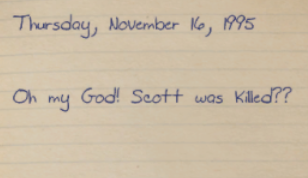 Thursday, November 16, 1995
Oh my God! Scott was killed??